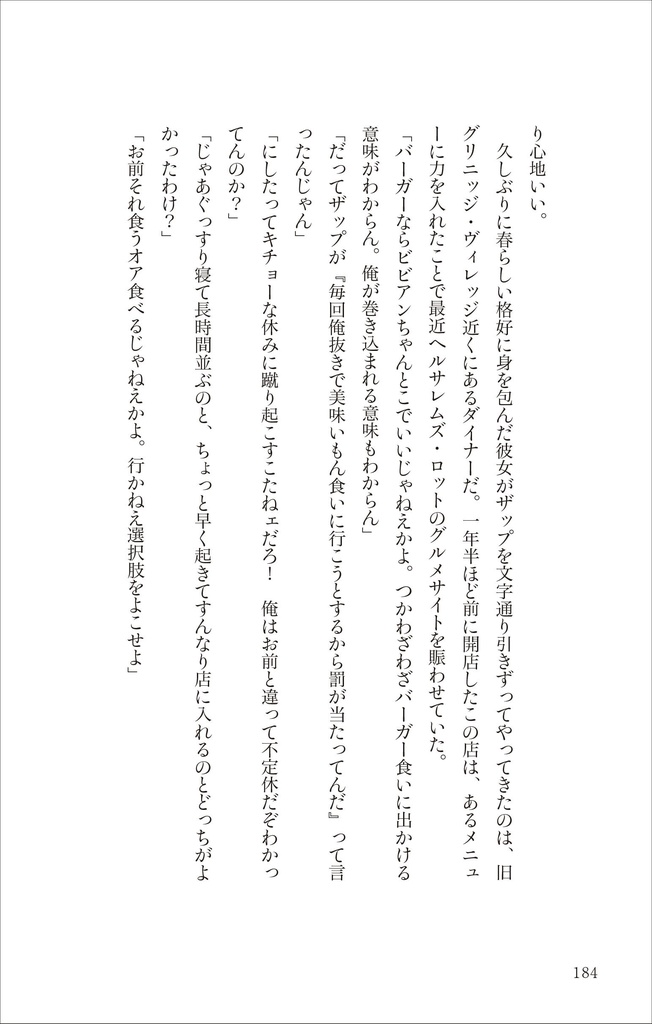 り心地いい。
　久しぶりに春らしい格好に身を包んだ彼女がザップを文字通り引きずってやってきたのは、旧
グリニッジ・ヴィレッジ近くにあるダイナーだ。一年半ほど前に開店したこの店は、あるメニュ
ーに力を入れたことで最近ヘルサレムズ・ロットのグルメサイトを賑わせていた。
「バーガーならビビアンちゃんとこでいいじゃねえかよ。つかわざわざバーガー食いに出かける
意味がわからん。俺が巻き込まれる意味もわからん」
「だってザップが『毎回俺抜きで美味いもん食いに行こうとするから罰が当たってんだ』って言
ったんじゃん」
「にしたってキチョーな休みに蹴り起こすこたねェだろ！　俺はお前と違って不定休だぞわかっ
てんのか？」
「じゃあぐっすり寝て長時間並ぶのと、ちょっと早く起きてすんなり店に入れるのとどっちがよ
かったわけ？」
「お前それ食うオア食べるじゃねえかよ。行かねえ選択肢をよこせよ」
184